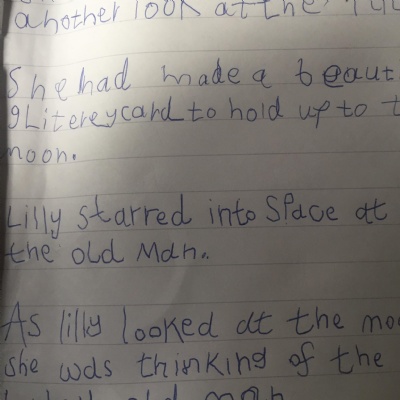 another look at the
She had made a beaut
gLitereycard to hold up to t
moon.
Lilly starred into Space at
the old Man..
As lilly looked at the mo
she was thinking of the
old man